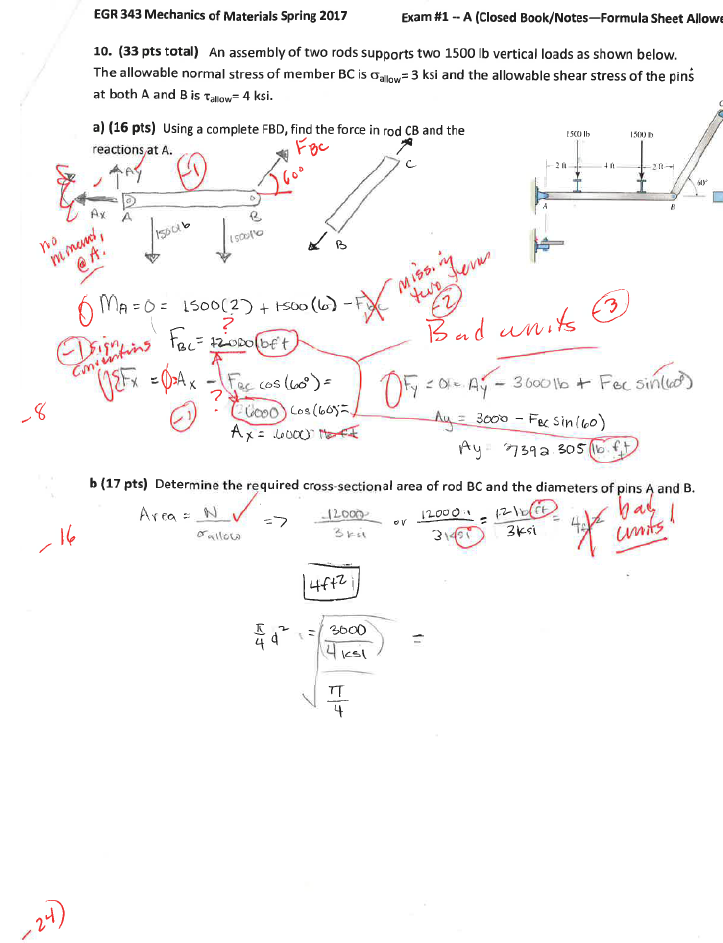 EGR 343 Mechanics of Materials Spring 2017
Exam #1 -- A (Closed Book/Notes—Formula Sheet Allowe
10. (33 pts total) An assembly of two rods supports two 1500 lb vertical loads as shown below.
The allowable normal stress of member BC is σallow= 3 ksi and the allowable shear stress of the pins
at both A and B is τallow= 4 ksi.
a) (16 pts) Using a complete FBD, find the force in rod CB and the
reactions at A.
Ay
-1
FBC
60°
Ax A
B
C
B
1500lb
1500lb
1500 lb
1500 lb
2 ft
4 ft
2 ft
60°
A
B
C
no
moment
@ A.
MA = 0 = 1500(2) + 1500(6) - F
Missing
two terms
-2
-1 sign
conventions
FBC = 12000 lbft
?
Bad units -3
ΣFx = 0 = Ax - FBC cos(60°) =
Fy = 0 = Ay - 3000lb + FBC sin(60°)
-8
-1
?
cos(60) =
Ax = 6000 lb ft
Ay = 3000 - FBC sin(60)
Ay 7392.305 lb.ft
b (17 pts) Determine the required cross-sectional area of rod BC and the diameters of pins A and B.
-16
Area = N/σallow ✓ => 12000/3 ksi or 12000/3 ksi = 12 lb ft/3ksi = 4
bad
units!
4ft²
π/4 d² = √(3000/4 ksi)/(π/4) =
-24